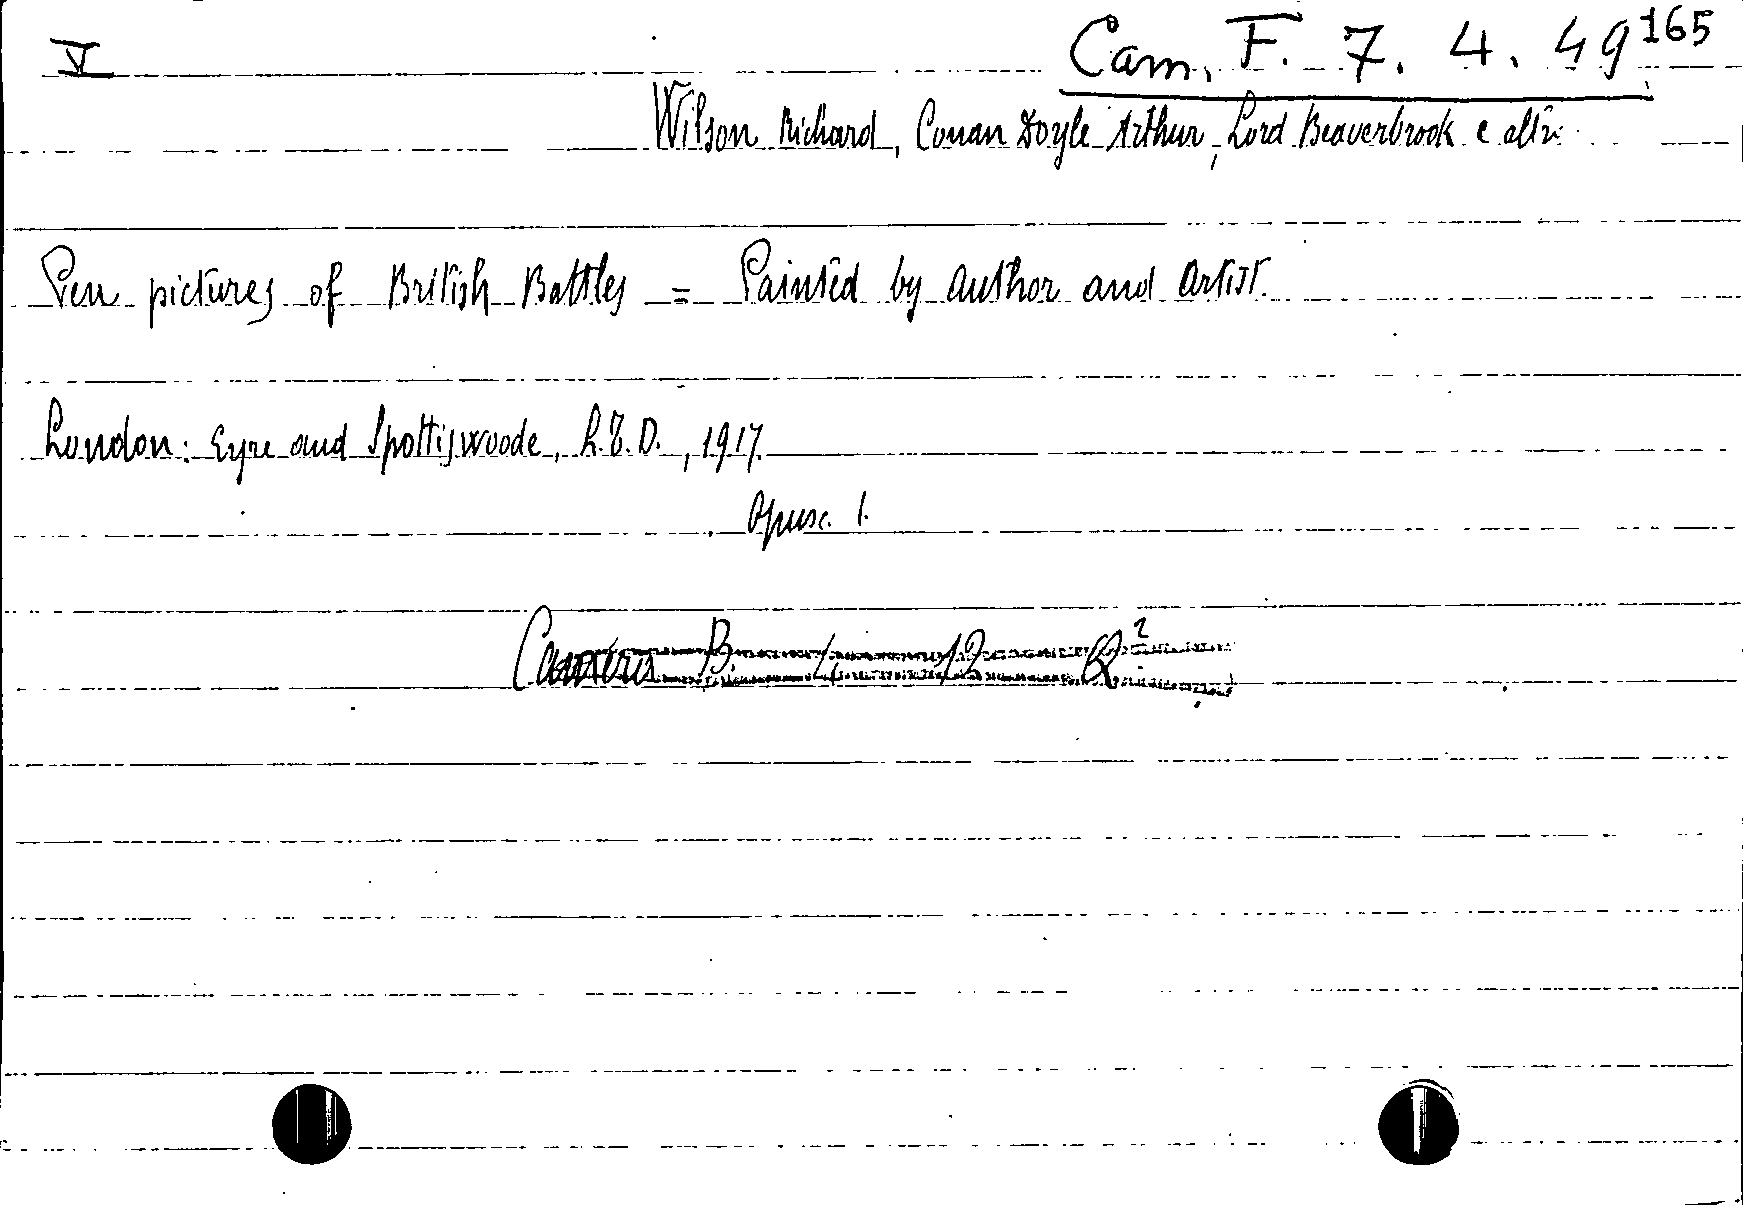 V
Cam. F. 7. 4. 49 165
Wilson Richard, Conan Doyle Arthur, Lord Beaverbrook e altri
Pen pictures of British Battles = Painted by author and artist.
London: Eyre and Spottiswoode, L.T.D., 1917.
Opusc. 1.
Camera B. 4. 12 Q²